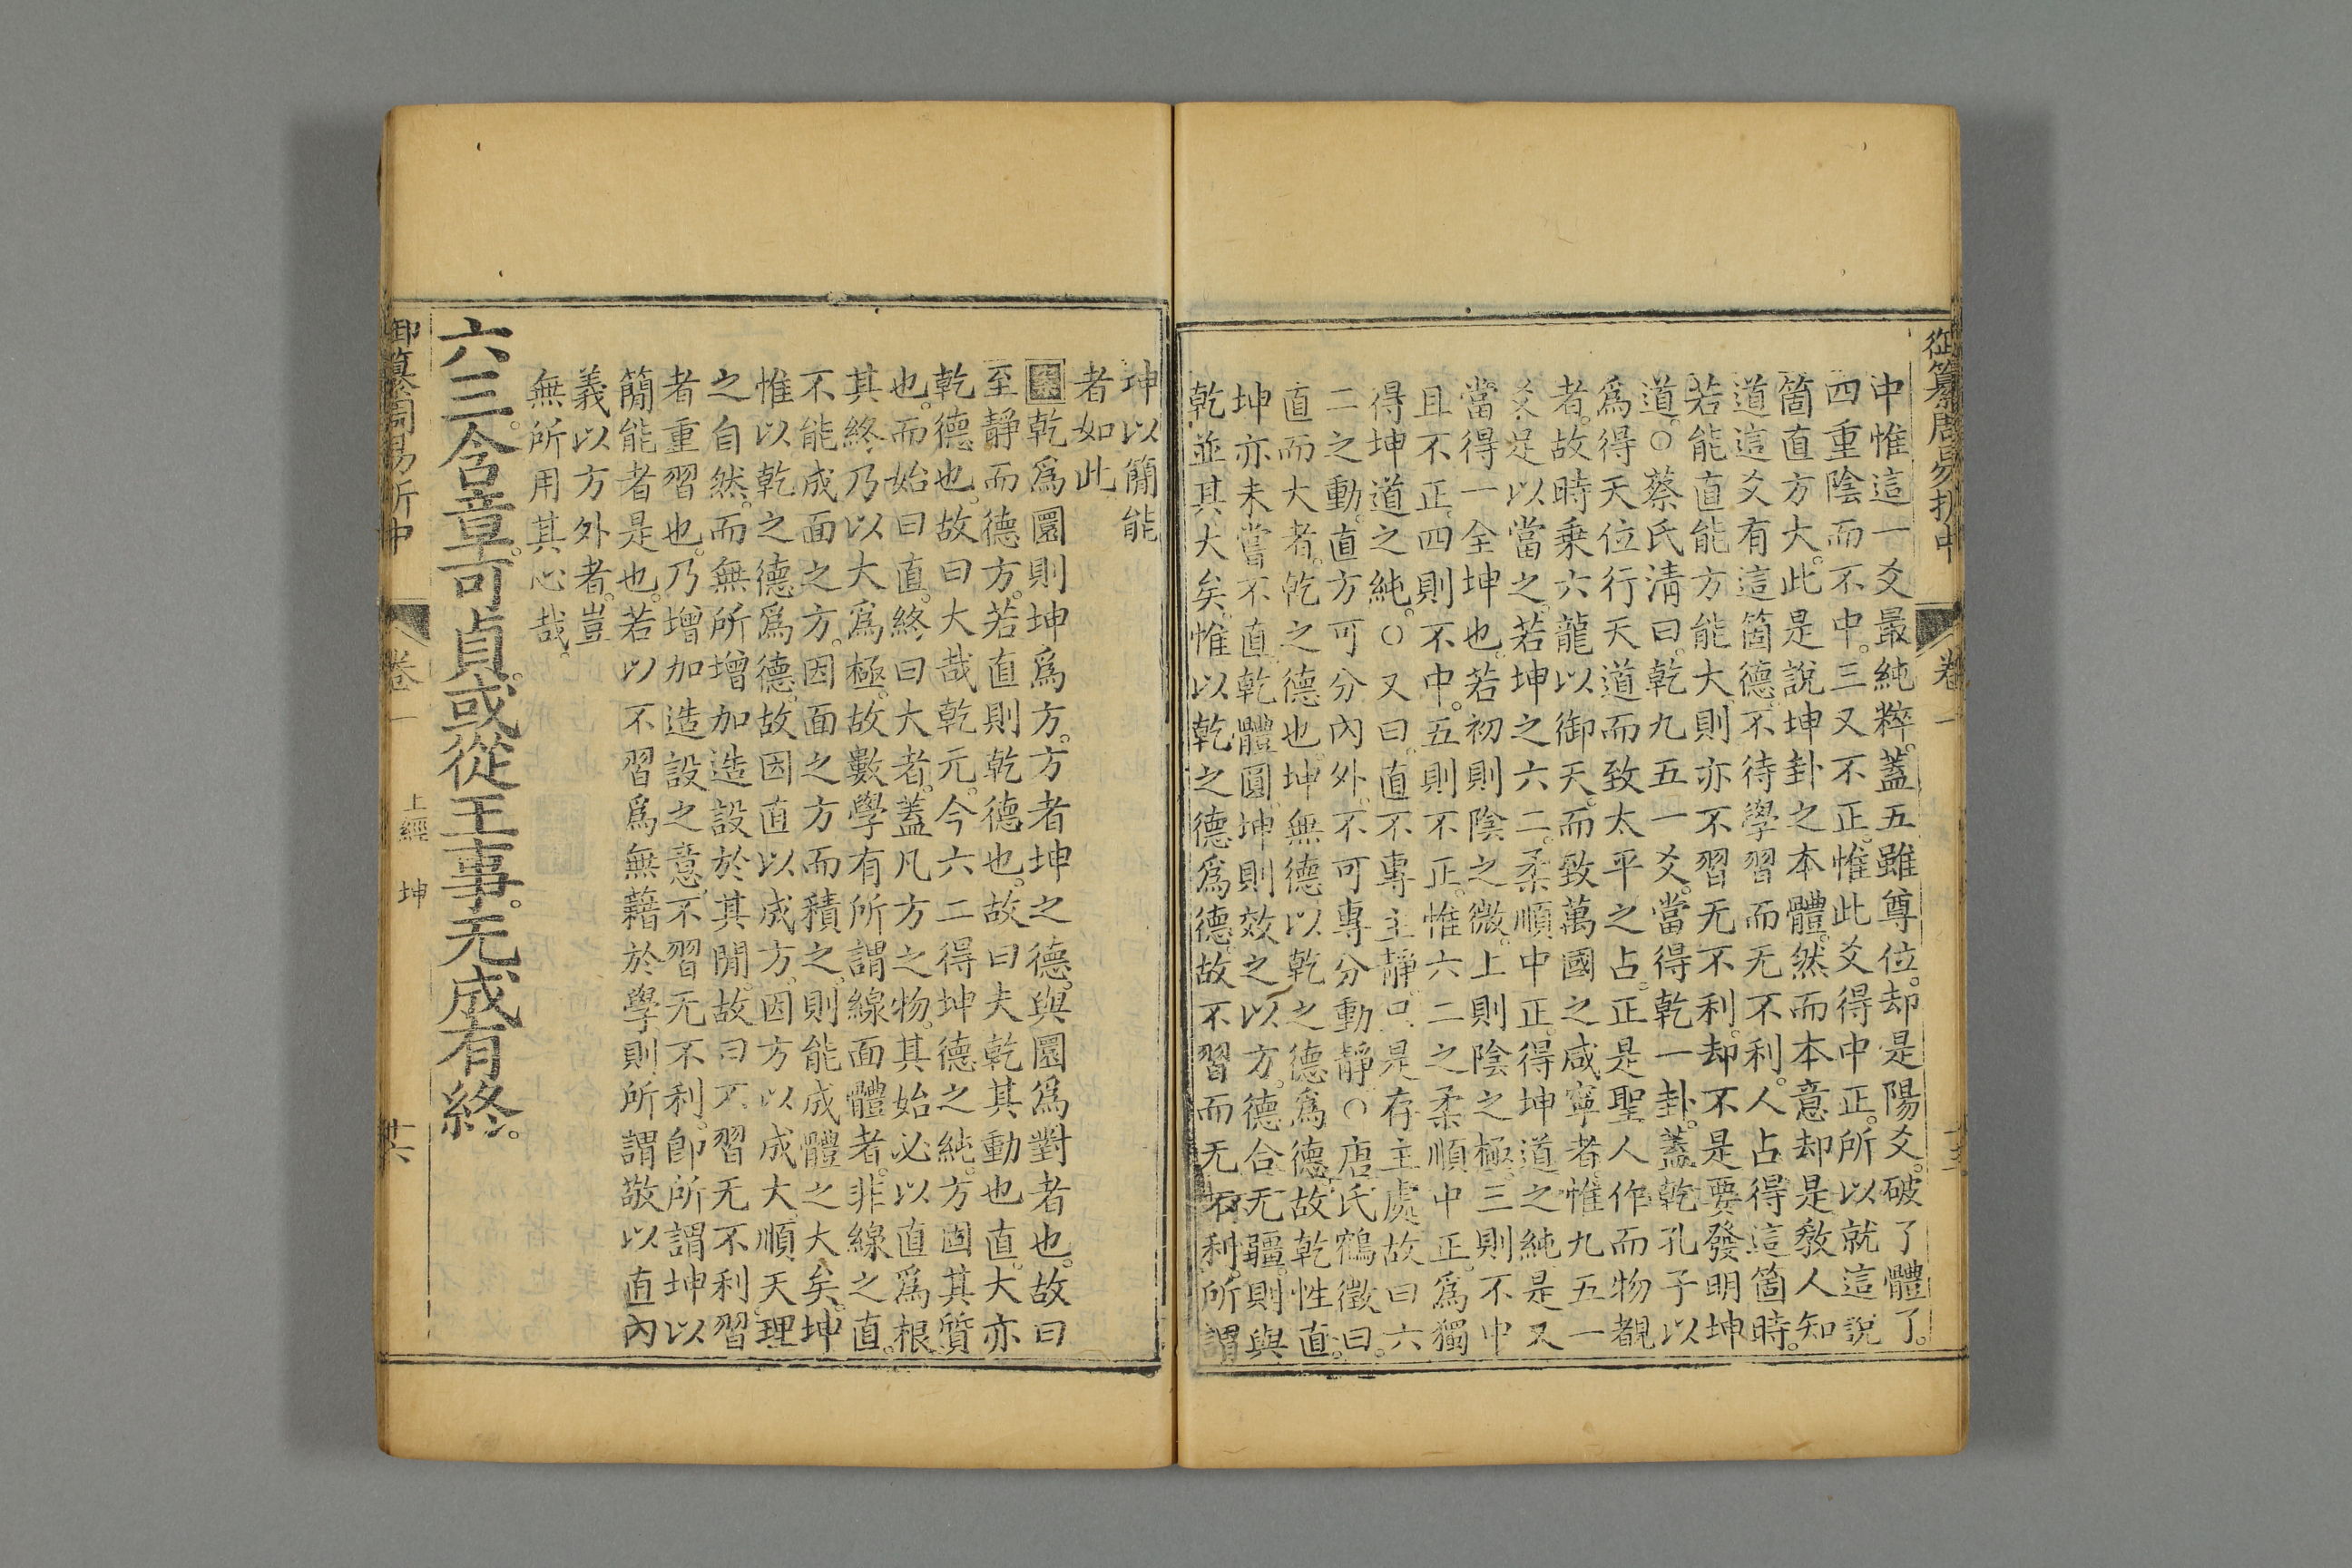 御纂周易折中
卷一
中惟這一爻最純粹。蓋五雖尊位。却是陽爻。破了體了。
四重陰而不中。三又不正。惟此爻得中正。所以就這說
箇直方大。此是說坤卦之本體。然而本意却是教人知
道這爻有這箇德。不待學習而无不利。人占得這箇時。
若能直能方能大。則亦不習无不利。却不是要發明坤
道。○蔡氏清曰。乾九五一爻。當得乾一卦。蓋乾孔子以
爲得天位行天道而致太平之占。正是聖人作而物覩
者。故時乘六龍以御天。而致萬國之咸寧者。惟九五一
爻足以當之。若坤之六二。柔順中正。得坤道之純。是又
當得一全坤也。若初則陰之微。上則陰之極。三則不中
且不正。四則不中。五則不正。惟六二之柔順中正。爲獨
得坤道之純。○又曰。直不專主靜。只是存主處。故曰六
二之動。直方可分內外。不可專分動靜。○唐氏鶴徵曰。
直而大者。乾之德也。坤無德以乾之德爲德。故乾性直。
坤亦未嘗不直。乾體圓。坤則效之以方。德合无疆。則與
乾並其大矣。惟以乾之德爲德。故不習而无不利。所謂
坤以簡能
者如此
案乾爲圜則坤爲方。方者坤之德。與圜爲對者也。故曰
至靜而德方。若直則乾德也。故曰夫乾其動也直。大亦
乾德也。故曰大哉乾元。今六二得坤德之純。方固其質
也。而始曰直。終曰大者。蓋凡方之物。其始必以直爲根。
其終乃以大爲極。故數學有所謂線面體者。非線之直。
不能成面之方。因面之方而積之。則能成體之大矣。坤
惟以乾之德爲德。故因直以成方。因方以成大。順天理
之自然。而無所增加造設於其閒。故曰不習无不利。習
者重習也。乃增加造設之意。不習无不利。卽所謂坤以
簡能者是也。若以不習爲無藉於學則所謂敬以直內
義以方外者。豈
無所用其心哉。
六三。含章可貞。或從王事。无成有終。
御纂周易折中
卷一
上經 坤
廿六